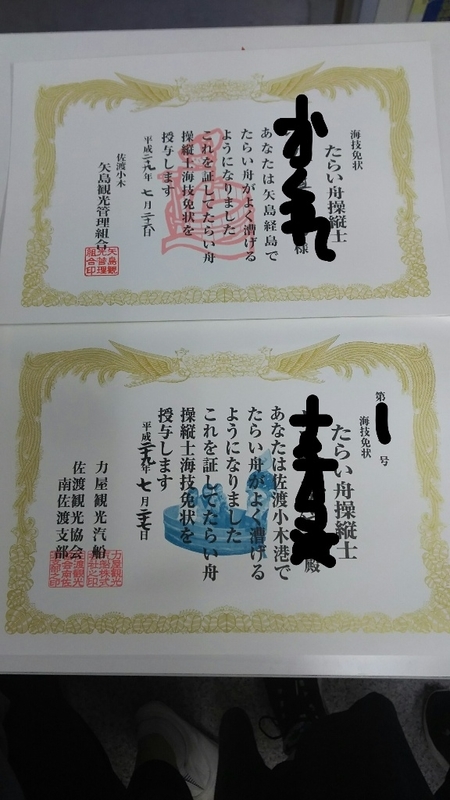 海技免状
たらい舟操縦士
様
あなたは矢島経島で
たらい舟がよく漕げる
ようになりました
これを証してたらい舟
操縦士海技免状を
授与します
平成二十九年七月二十六日
佐渡小木
矢島観光管理組合
第 号
海技免状
たらい舟操縦士
殿
あなたは佐渡小木港で
たらい舟がよく漕げる
ようになりました
これを証してたらい舟
操縦士海技免状を
授与します
平成二九年七月二七日
力屋観光汽船
佐渡観光協会
南佐渡支部